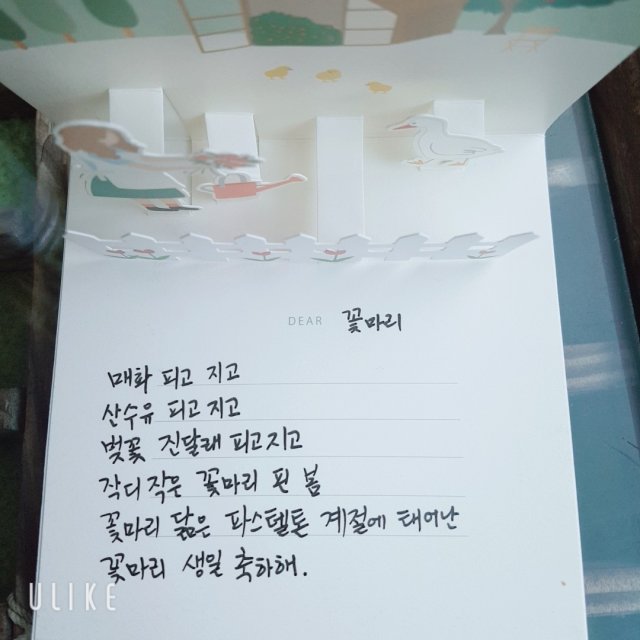 DEAR 꽃마리
매화 피고 지고
산수유 피고 지고
벚꽃 진달래 피고지고
작디작은 꽃마리 핀 봄
꽃마리 닮은 파스텔톤 계절에 태어난
꽃마리 생일 축하해.
ULIKE